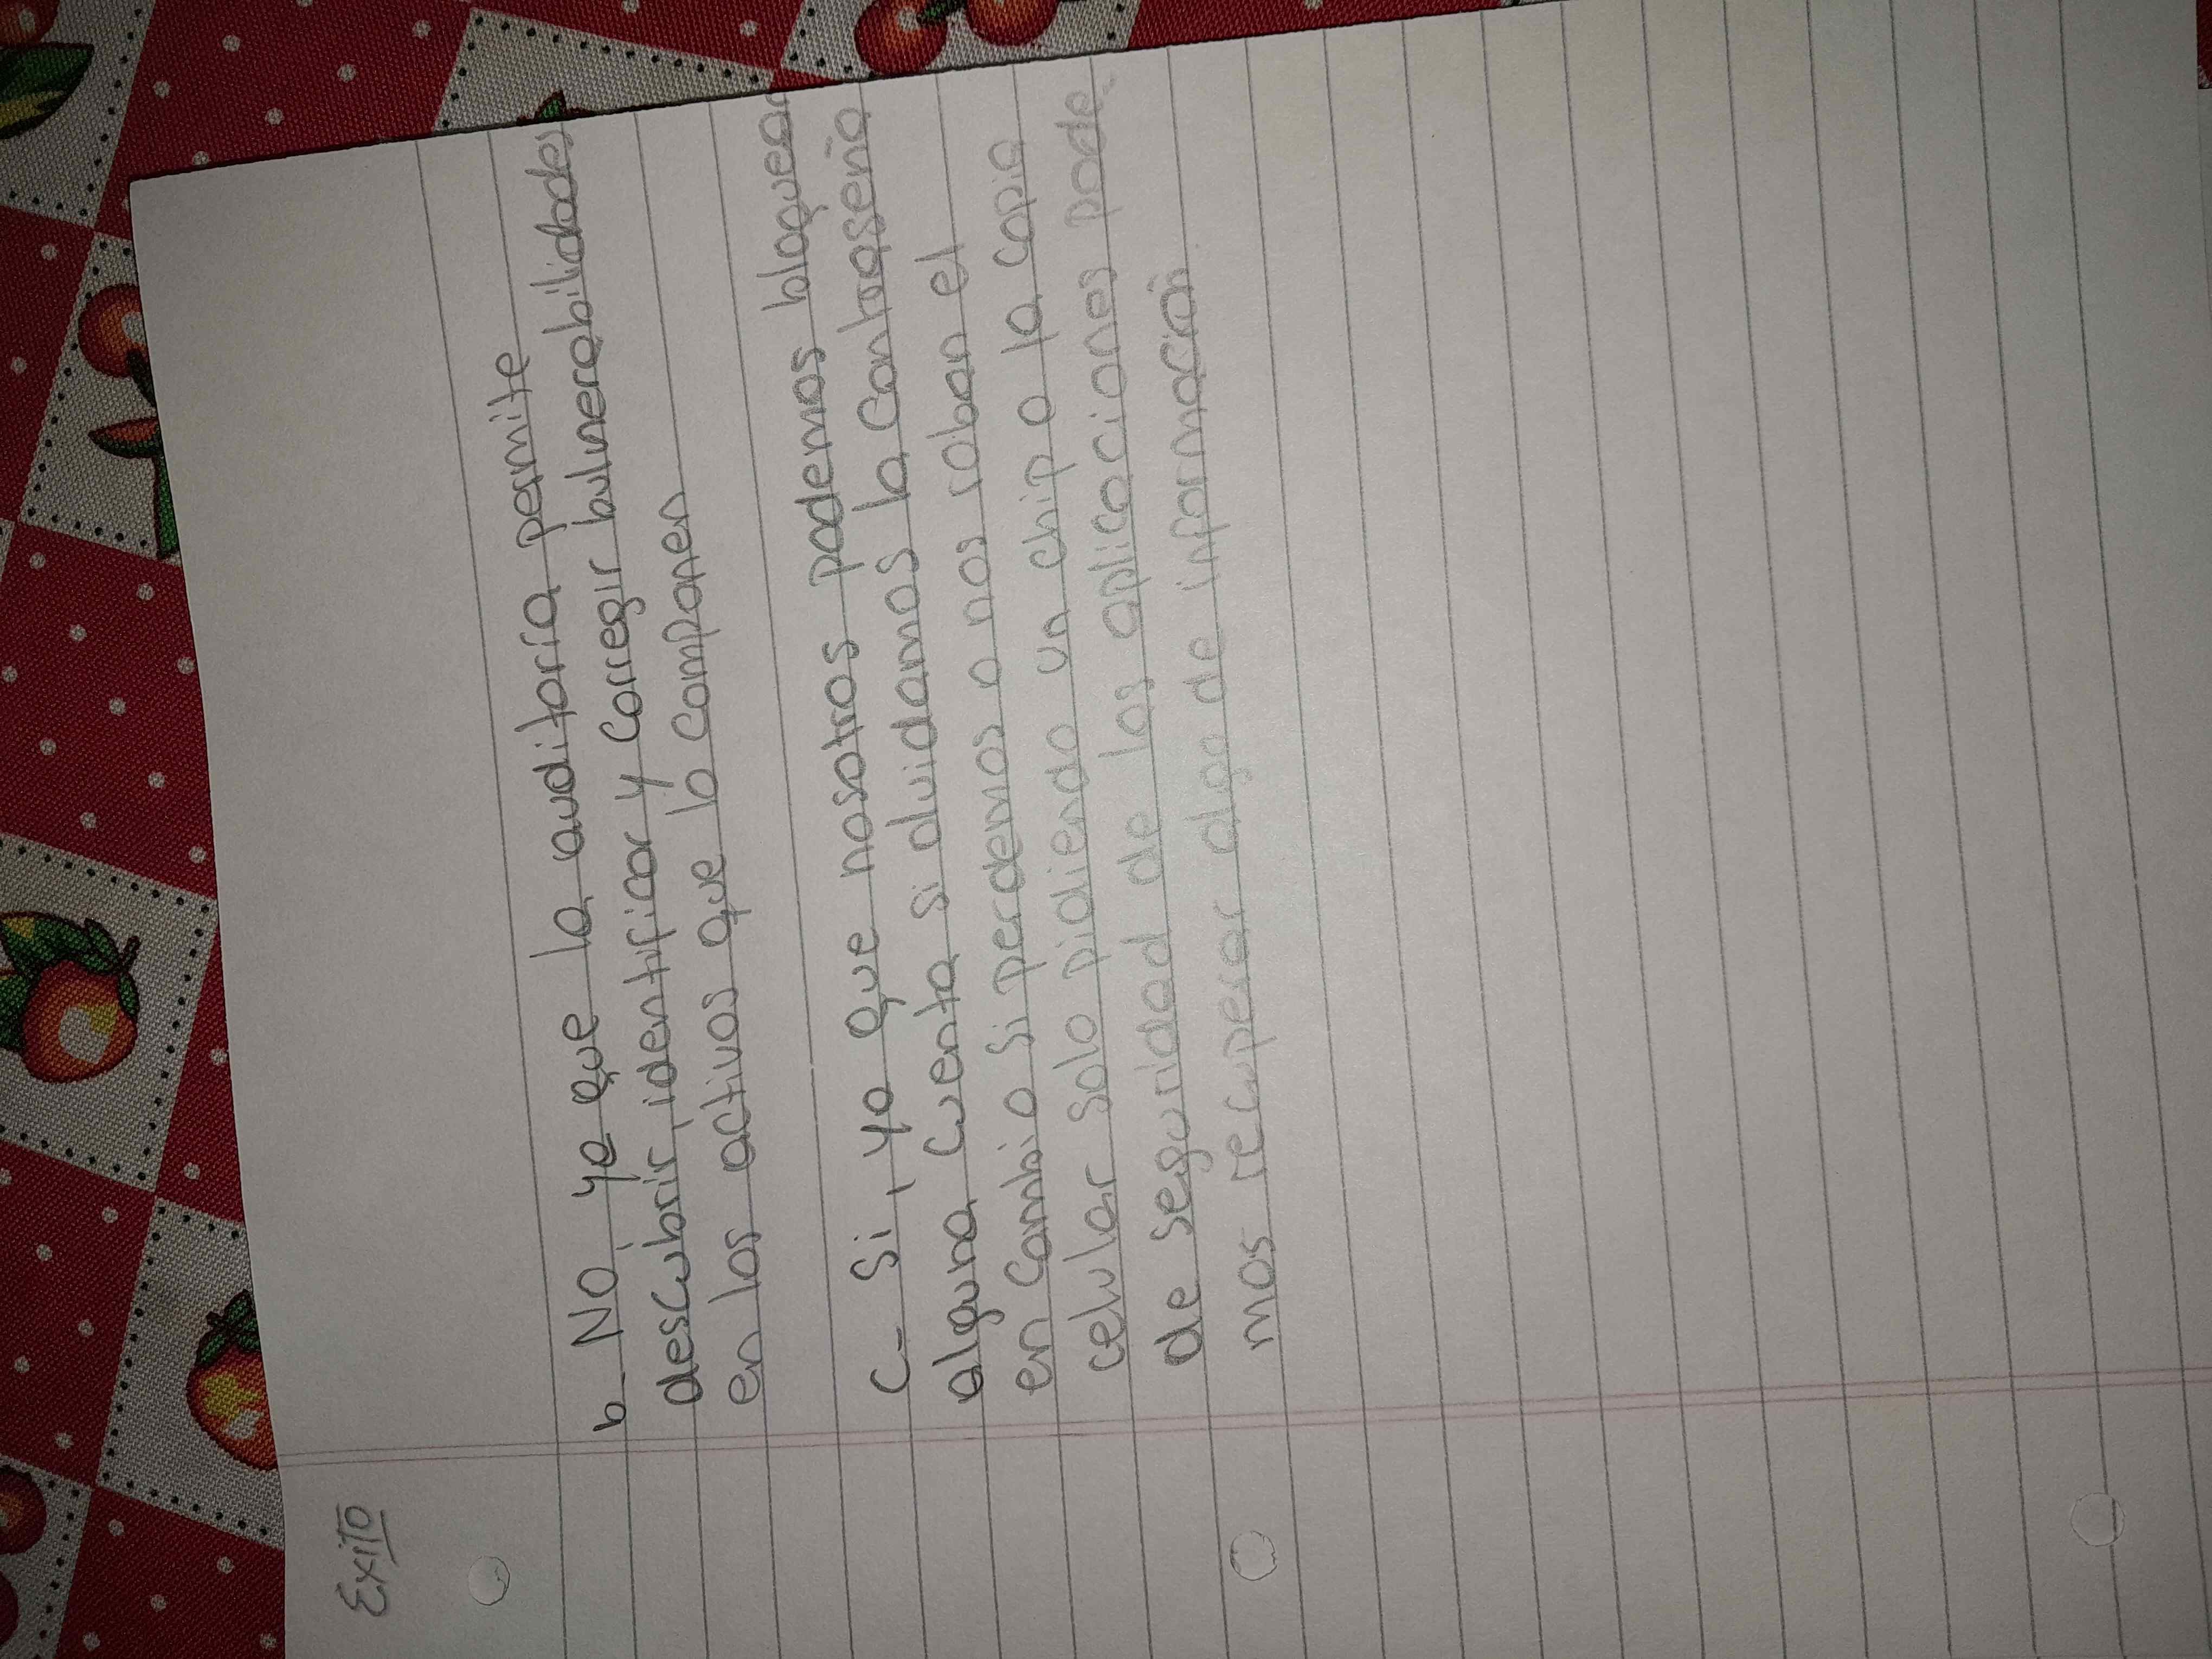 Exito
b- No, ya que la auditoría permite
descubrir, identificar y corregir bulnerabilidades
en los activos que lo componen
C- Si, ya que nosotros podemos bloquear
alguna cuenta si olvidamos la contraseña
en cambio si perdemos o nos roban el
celular solo pidiendo un chip o la copia
de seguridad de las aplicaciones pode-
mos recuperar algo de información